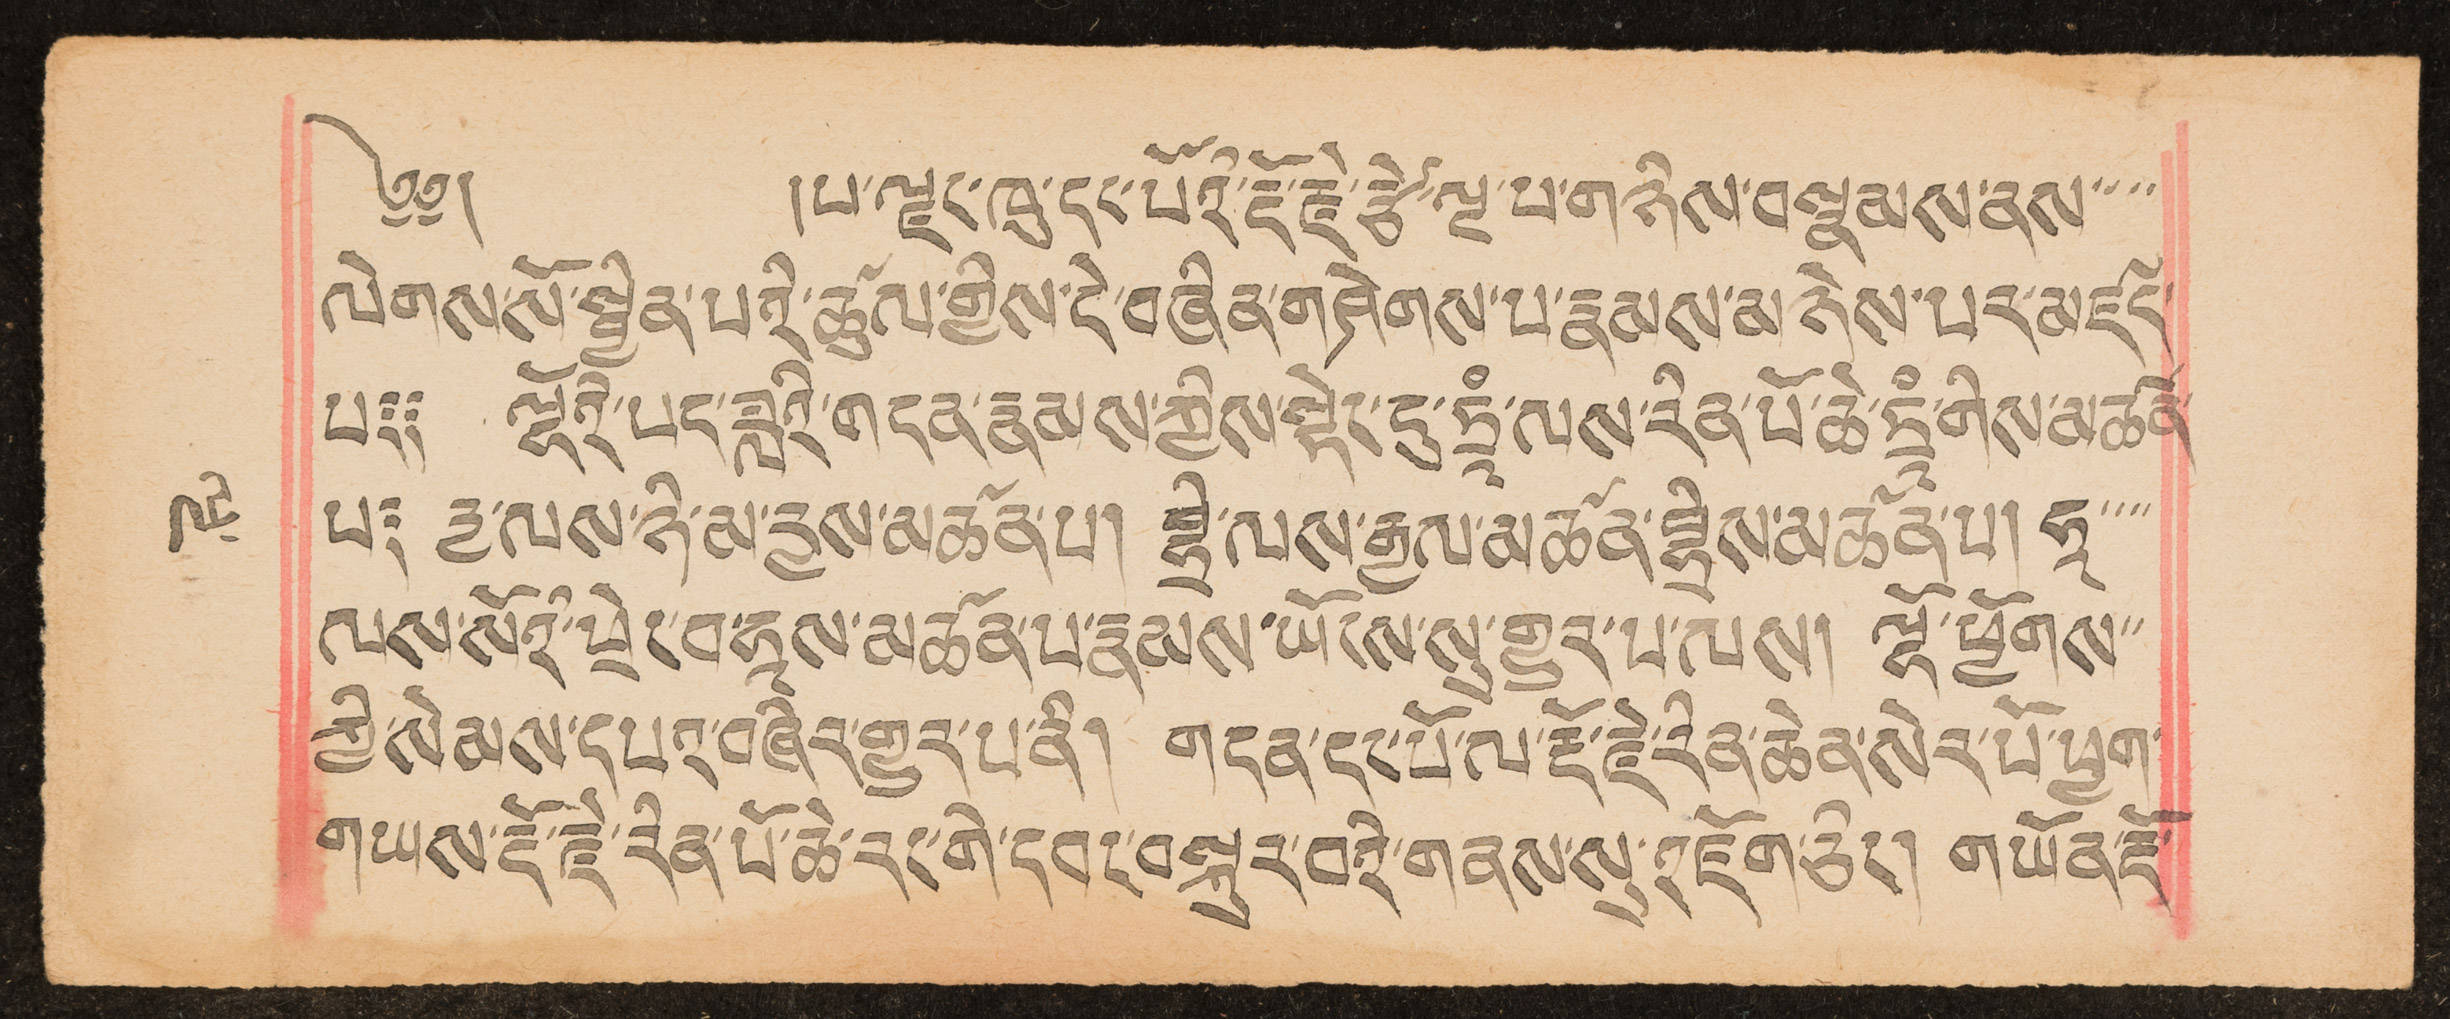 ༄༅། །པ་ལྗང་ཁུ་དང་པོའི་རྡོ་རྗེ་རྩེ་ལྔ་པ་གཉིས་བསྣམས་ནས་
ལེགས་སོ་སྦྱིན་པའི་ཚུལ་གྱིས་དེ་བཞིན་གཤེགས་པ་རྣམས་མཉེས་པར་མཛད་
པ༔༔ ལྷོའི་པད་ཟླའི་གདན་རྣམས་ཀྱིས་སྟེང་དུ་ཏྲཾ་ལས་རིན་པོ་ཆེ་ཏྲཾ་གིས་མཚན་
པ༔ ཛ་ལས་ཉི་མ་ཛས་མཚོན་པ། ལས་རྒྱལ་མཚོན་ མཚོན་པ། ཧ
ལས་སོའི་ཕྲེང་བ་ཧས་མཚོན་པ་རྣམས་ཡོངས་སུ་གྱུར་པ་ལས། ལྷོ་ཕྱོགས་
ཀྱི་སེམས་དཔའ་བཞིར་གྱུར་པ་ནི། གདན་དང་པོ་ལ་རྡོ་རྗེ་རིན་ཆེན་སེར་པོ་ཕྱག་
གཡས་རྡོ་རྗེ་རིན་པོ་ཆེ་རང་གི་དབང་བསྐུར་བའི་གནས་སུ་འཇོག་ཅིང། གཡོན་རྡོ་